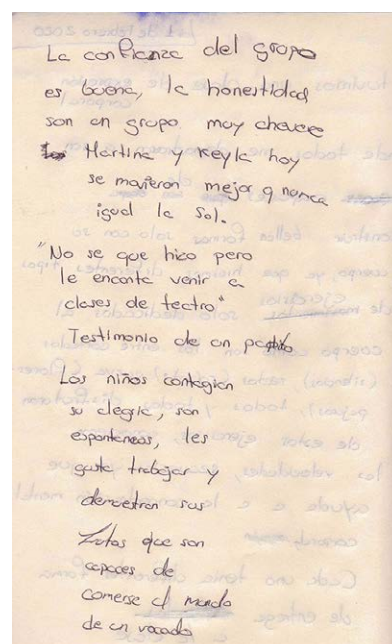 La confianza del grupo
es buena, la honestidad,
son un grupo muy chevere
Martina y Keyla hoy
se movieron mejor q nunca
igual la Sol.
"No se que hizo pero
le encanta venir a
clases de teatro"
Testimonio de un
Los niños contagian
su alegria, son
espontaneos, les
gusta trabajar y
demuestran sus
que son
capaces de
comerse el mundo
de un vocado